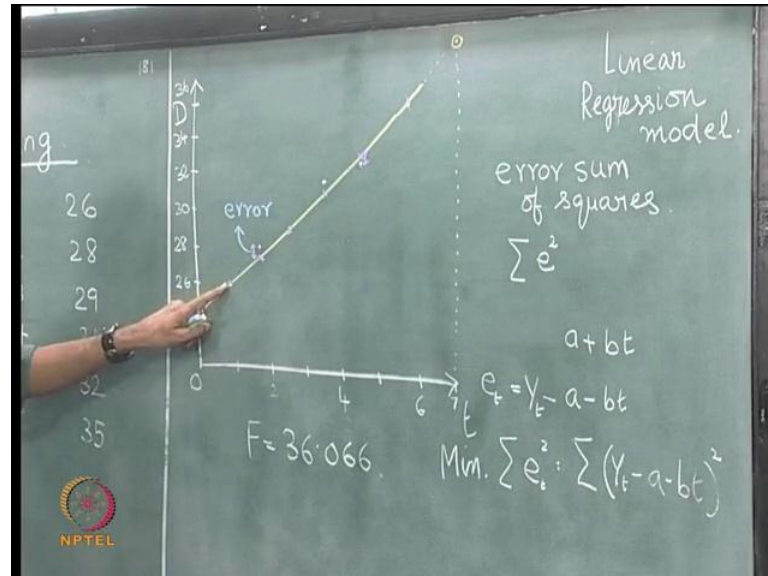 ng
26
28
29
32
35
181
36
D
34
32
30
28
26
error
0
2
4
6
7
t
F = 36.066.
Linear
Regression
model.
error sum
of squares.
∑ e²
a + bt
eₜ = Yₜ - a - bt
Min. ∑ eₜ² : ∑ (Yₜ - a - bt)²
NPTEL